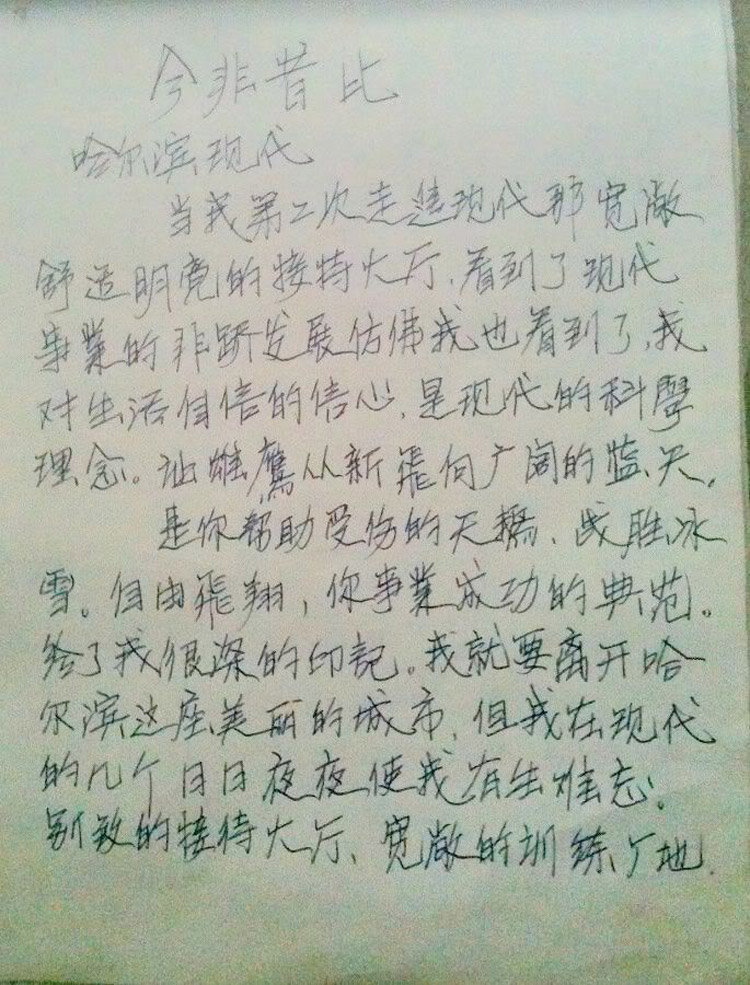 今非昔比
哈尔滨现代
当我第二次走进现代那宽敞
舒适明亮的接待大厅,看到了现代
事業的非跃发展仿佛我也看到了,我
对生活自信的信心,是现代的科學
理念。让雄鹰从新飛向广阔的蓝天,
是你帮助受伤的天鵝、战胜冰
雪。自由飛翔,你事業成功的典范。
给了我很深的印記。我就要离开哈
尔滨这座美丽的城市,但我在现代
的几个日日夜夜使我有生难忘!
别致的接待大厅、宽敞的训练广地,